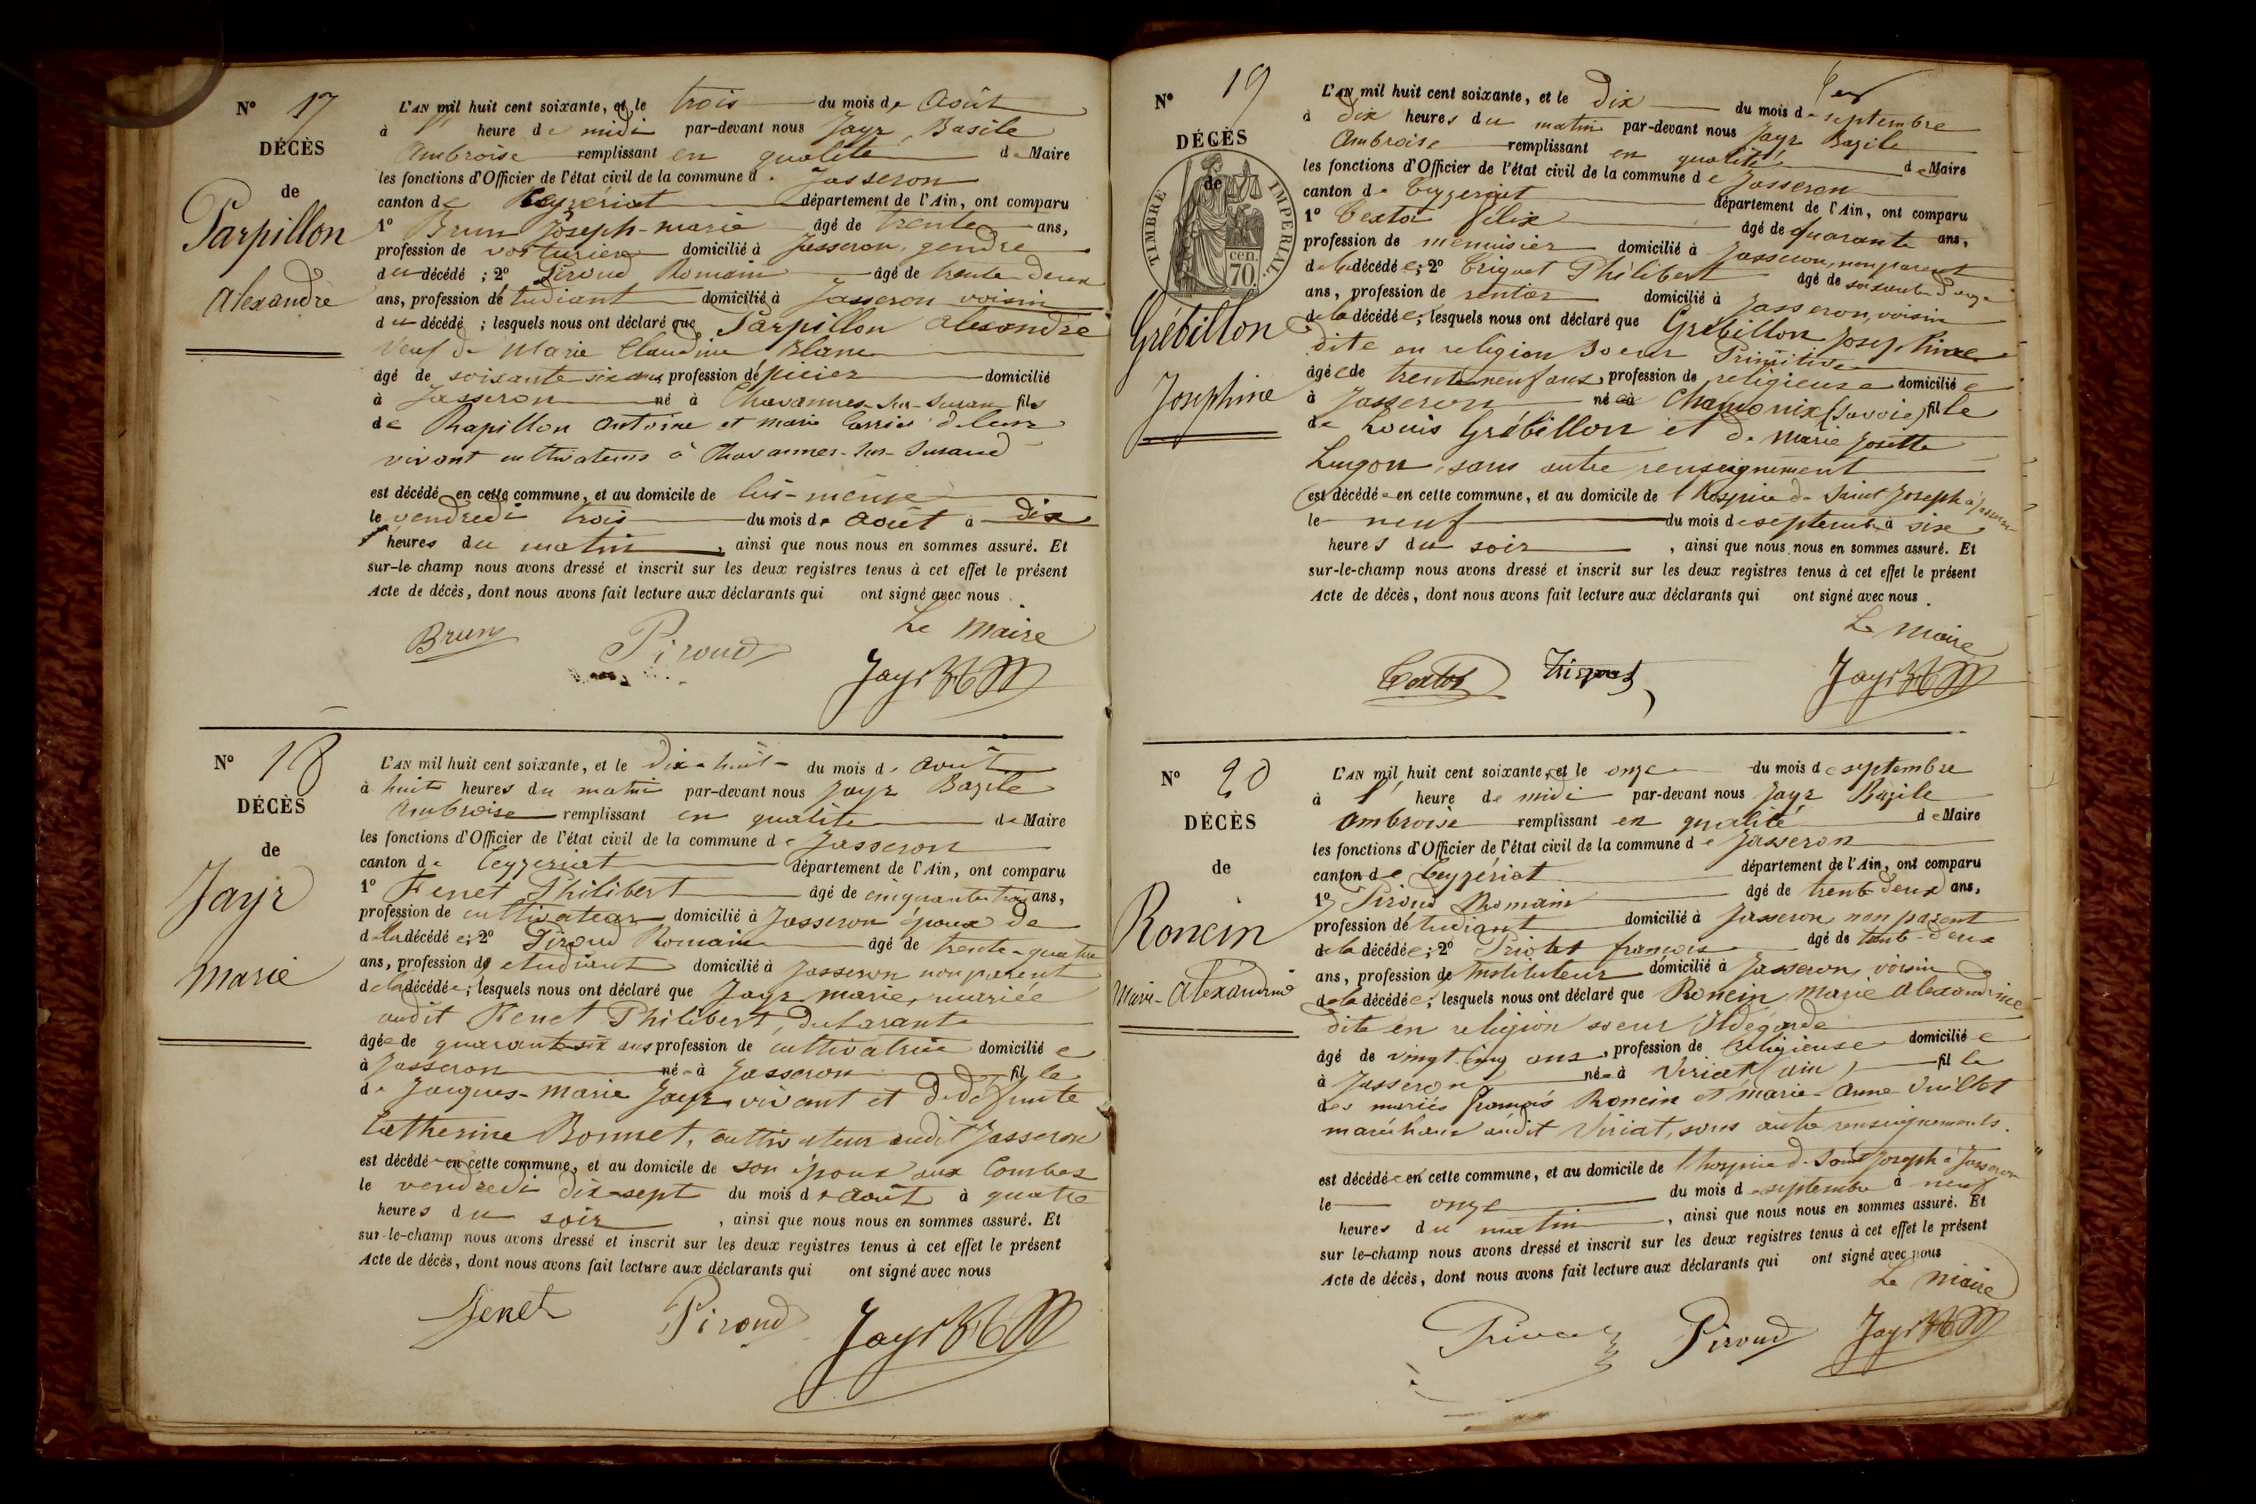 N° 17
DÉCÈS
de
Parpillon
Alexandre
L'AN mil huit cent soixante, et le trois du mois de Août
à 1' heure de midi par-devant nous Jayr Basile
Ambroise remplissant en qualité de Maire
les fonctions d'Officier de l'état civil de la commune de Jasseron
canton de Ceyzériat département de l'Ain, ont comparu
1° Brun Joseph-marie âgé de trente ans,
profession de voiturier domicilié à Jasseron, gendre
du décédé ; 2° Piroud Romain âgé de trente deux
ans, profession détudiant domicilié à Jasseron voisin
du décédé ; lesquels nous ont déclaré que Parpillon alexandre
veuf de Marie Claudine Blanc
âgé de soixante six ans profession dépicier domicilié
à Jasseron né à Chavannes-sur-Suran fils
de Rapillon antoine et marie
vivant cultivateurs à Chavannes-sur-Suran
est décédé en cette commune, et au domicile de lui-même
le vendredi trois du mois de août à dix
heures du matin, ainsi que nous nous en sommes assuré. Et
sur-le-champ nous avons dressé et inscrit sur les deux registres tenus à cet effet le présent
Acte de décès, dont nous avons fait lecture aux déclarants qui ont signé avec nous.
Le Maire
Brun Piroud Jayr
N° 18
DÉCÈS
de
Jayr
marie
L'AN mil huit cent soixante, et le dix-huit du mois d'août
à huit heures du matin par-devant nous Jayr Bazile
Ambroise remplissant en qualité de Maire
les fonctions d'Officier de l'état civil de la commune de Jasseron
canton de Ceyzeriat département de l'Ain, ont comparu
1° Fenet Philibert âgé de cinquante trois ans,
profession de cultivateur domicilié à Jasseron époux de
de la décédée; 2° Piroud Romain âgé de trente-quatre
ans, profession de etudiant domicilié à Jasseron non parent
de la décédée; lesquels nous ont déclaré que Jayr marie, mariée
audit Fenet Philibert, declarant
âgée de quarante six ans profession de cultivatrice domiciliée
à Jasseron née à Jasseron fille
de Jacques-Marie Jayr vivant et de défunte
Catherine Bonnet, cultivateur audit Jasseron
est décédée en cette commune, et au domicile de son époux aux Combes
le vendredi dix-sept du mois d'août à quatre
heures du soir, ainsi que nous nous en sommes assuré. Et
sur-le-champ nous avons dressé et inscrit sur les deux registres tenus à cet effet le présent
Acte de décès, dont nous avons fait lecture aux déclarants qui ont signé avec nous
Fenet Piroud Jayr
N° 19
DÉCÈS
de
TIMBRE IMPÉRIAL
70 cen.
Grébillon
Josephine
L'AN mil huit cent soixante, et le dix du mois de septembre
à dix heures du matin par-devant nous Jayr Bazile
Ambroise remplissant en qualité de Maire
les fonctions d'Officier de l'état civil de la commune de Jasseron
canton de Ceyzeriat département de l'Ain, ont comparu
1° Textor félix âgé de quarante ans,
profession de menuisier domicilié à Jasseron, non parent
de la décédée; 2° Triquet Philibert âgé de soixante d'onze
ans, profession de rentier domicilié à Jasseron, voisin
de la décédée; lesquels nous ont déclaré que Grébillon Josephine
dite en religion soeur Primitive
âgée de trente neuf ans, profession de religieuse domiciliée
à Jasseron née à Chamonix (Savoie) fille
de Louis Grébillon et de marie Josette
Lugon, sans autre renseignement
est décédée en cette commune, et au domicile de l'hospice de Saint Joseph à Jasseron
le neuf du mois de septembre à six
heures du soir, ainsi que nous nous en sommes assuré. Et
sur-le-champ nous avons dressé et inscrit sur les deux registres tenus à cet effet le présent
Acte de décès, dont nous avons fait lecture aux déclarants qui ont signé avec nous.
Le Maire
Textor Triquet Jayr
N° 20
DÉCÈS
de
Roncin
Marie-Alexandrine
L'AN mil huit cent soixante, et le onze du mois de septembre
à 1' heure de midi par-devant nous Jayr Bazile
Ambroise remplissant en qualité de Maire
les fonctions d'Officier de l'état civil de la commune de Jasseron
canton de Ceyzériat département de l'Ain, ont comparu
1° Piroud Romain âgé de trente deux ans,
profession détudiant domicilié à Jasseron non parent
de la décédée; 2° françois âgé de trente-deux
ans, profession de Instituteur domicilié à Jasseron, voisin
de la décédée; lesquels nous ont déclaré que Roncin, marie Alexandrine
dite en religion soeur Ildegarde
âgé de vingt cinq ans, profession de Religieuse domiciliée
à Jasseron née à Viriat (ain) fille
des mariés françois Roncin et marie-anne Vuillot
maréchaux audit Viriat, sans autre renseignements.
est décédée en cette commune, et au domicile de l'hospice de Saint Joseph à Jasseron
le onze du mois de septembre à neuf
heures du matin, ainsi que nous nous en sommes assuré. Et
sur le-champ nous avons dressé et inscrit sur les deux registres tenus à cet effet le présent
Acte de décès, dont nous avons fait lecture aux déclarants qui ont signé avec nous
Le Maire
Piroud Jayr